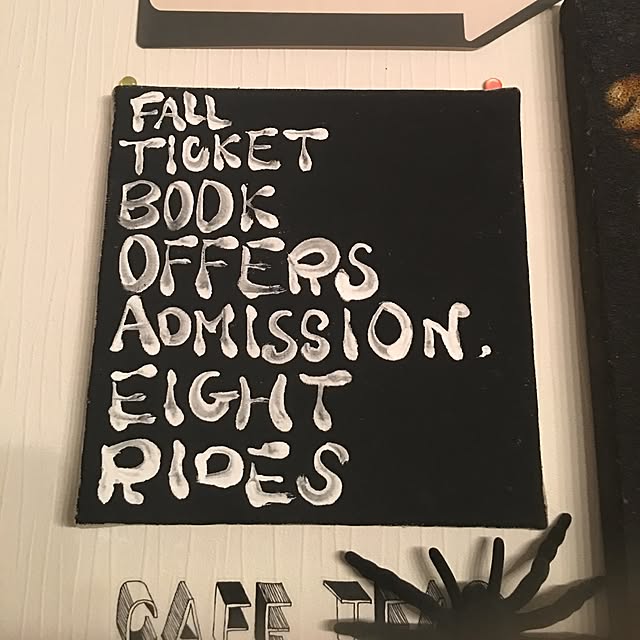 FALL
TICKET
BOOK
OFFERS
ADMISSION,
EIGHT
RIDES
CAFE